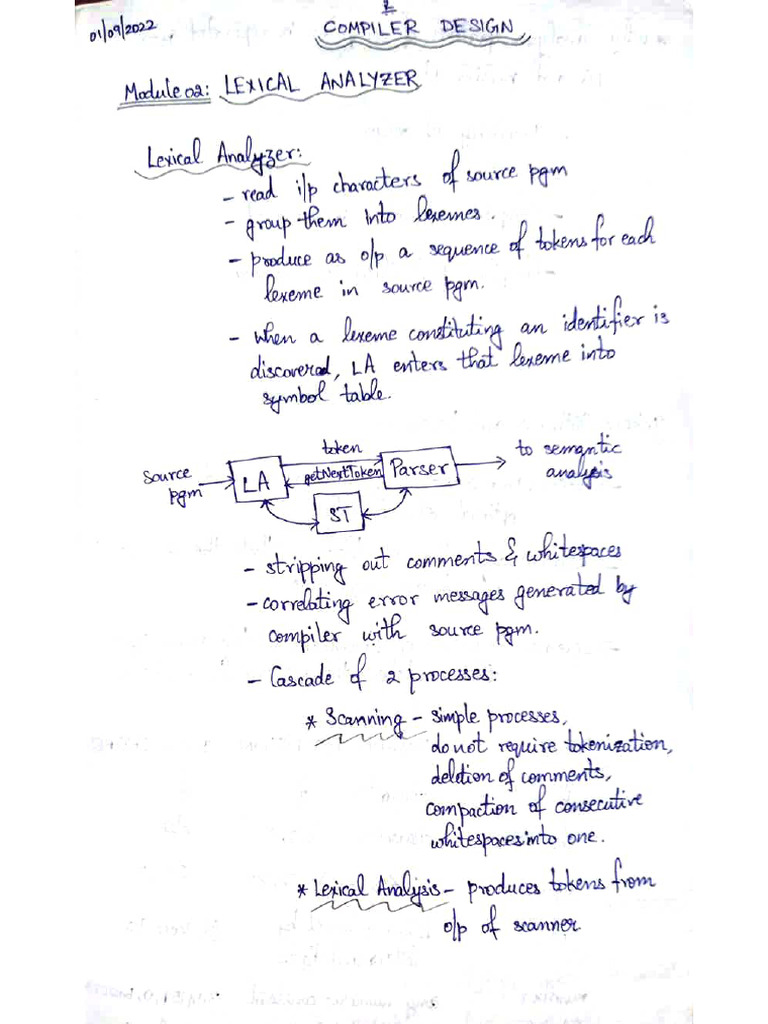 01/09/2022
COMPILER DESIGN
Module 02: LEXICAL ANALYZER
Lexical Analyzer:
- read i/p characters of source pgm
- group them into lexemes.
- produce as o/p a sequence of tokens for each
lexeme in source pgm.
- when a lexeme constituting an identifier is
discovered, LA enters that lexeme into
symbol table.
source pgm
LA
token
getNextToken
Parser
to semantic analysis
ST
- stripping out comments & whitespaces
- correlating error messages generated by
compiler with source pgm.
- Cascade of 2 processes:
* Scanning - simple processes,
do not require tokenization,
deletion of comments,
compaction of consecutive
whitespaces into one.
* Lexical Analysis - produces tokens from
o/p of scanner.